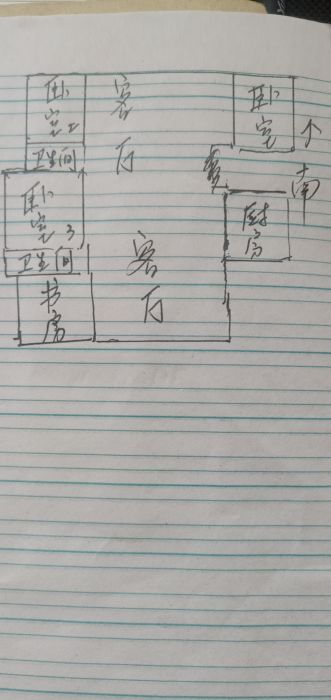 卧室2
客厅
卧室
卫生间
南
卧室3
厨房
卫生间
客厅
书房